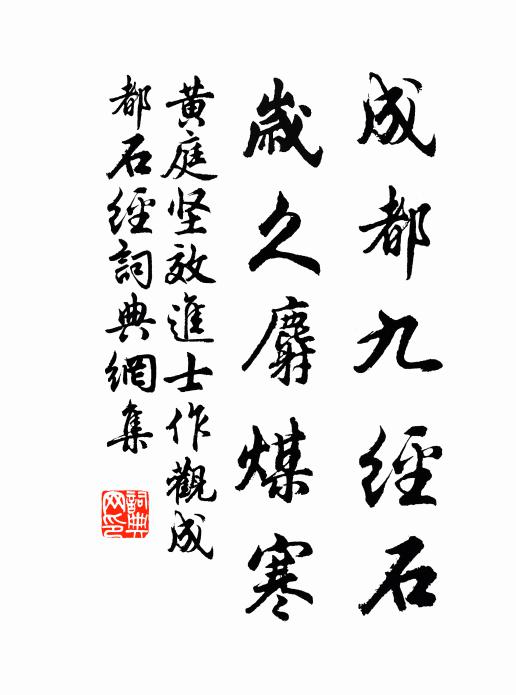 成都九經石
歲久麝煤寒
黃庭坚效進士作觀成
都石經詞典網集
詞典網印